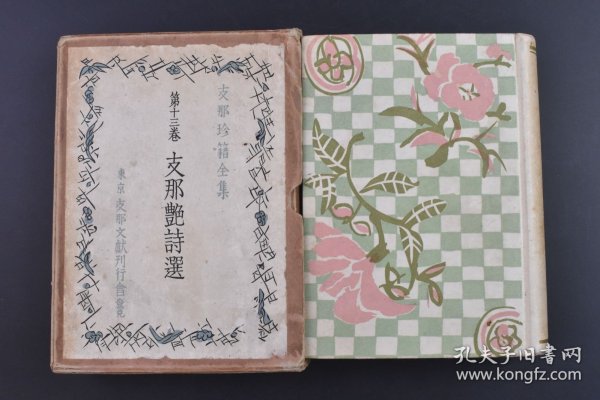 支那珍籍全集
第十三卷 支那艷詩選
東京 支那文獻刊行會藏
孔夫子旧书网
www.kongfz.com